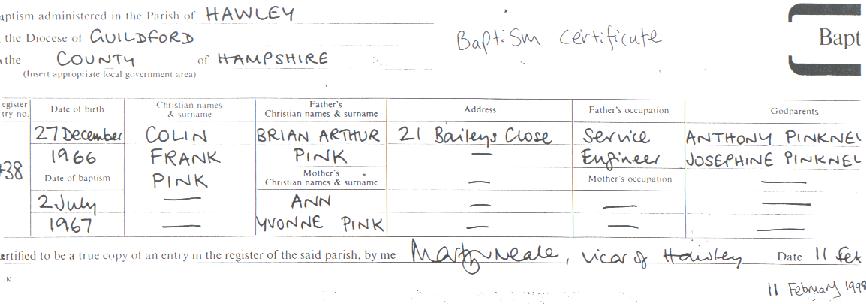 aptism administered in the Parish of HAWLEY
the Diocese of GUILDFORD
the COUNTY of HAMPSHIRE
(Insert appropriate local government area)
Baptism certificate
Bapt
egister try no.
Date of birth
Christian names & surname
Father's Christian names & surname
Address
Father's occupation
Godparents
27 December COLIN BRIAN ARTHUR 21 Baileys Close Service ANTHONY PINKNEL
1966 FRANK PINK — Engineer JOSEPHINE PINKNEL
38 Date of baptism PINK Mother's Christian names & surname — Mother's occupation —
2 July — ANN — — —
1967 — YVONNE PINK — — —
ertified to be a true copy of an entry in the register of the said parish, by me Neale, vicar of Hawley Date 11 Feb
11 February